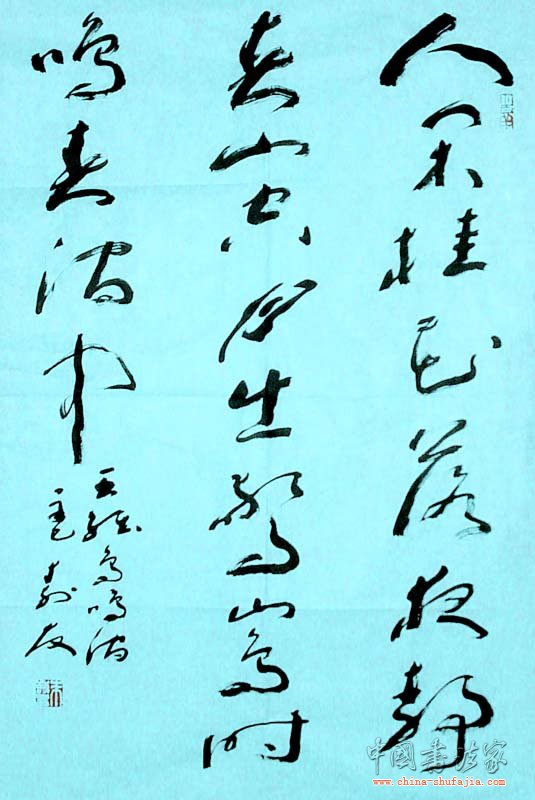 人闲桂花落夜静
春山空月出惊山鸟时
鸣春涧中
王维鸟鸣涧
中國書法家
www.china-shufajia.com